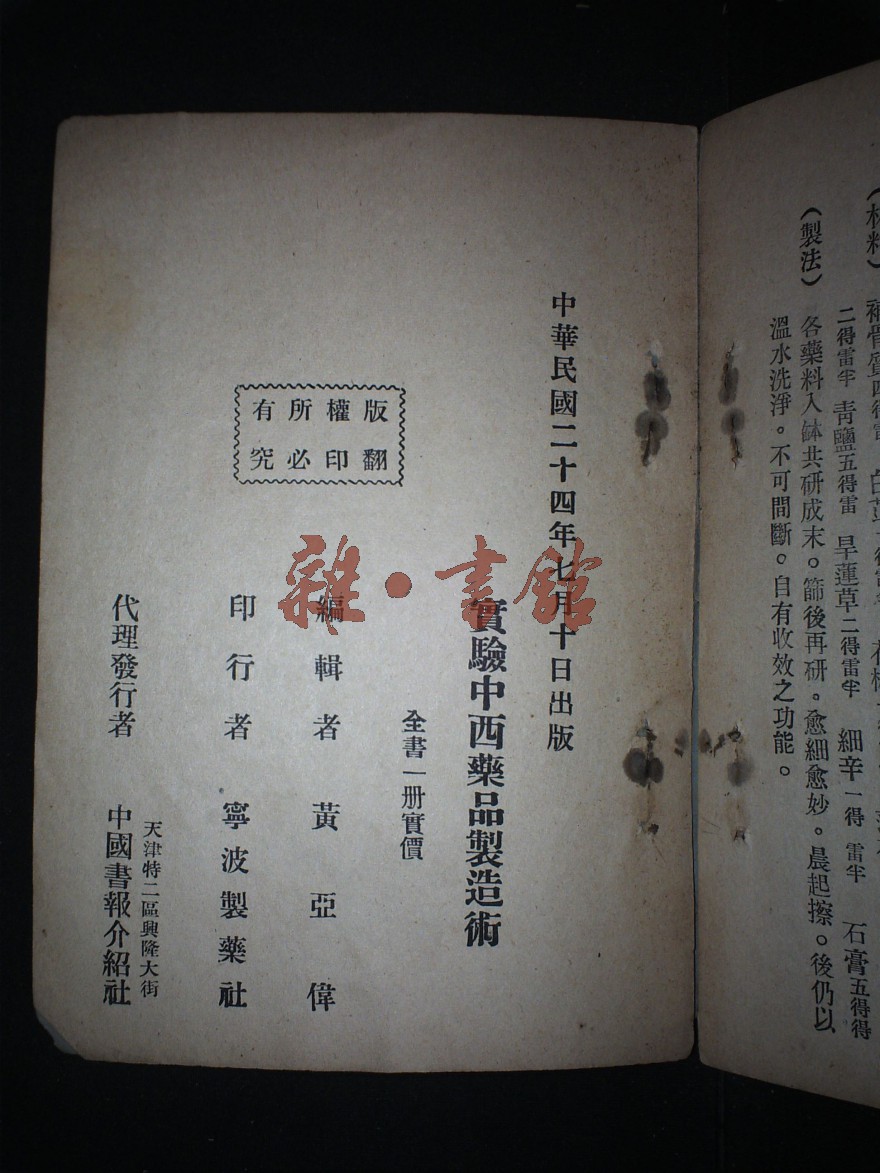 （材料）
二得雷半 青鹽五得雷 旱蓮草二得雷半 細辛一得雷半 石膏五得得
（製法） 各藥料入鉢共研成末。篩後再研。愈細愈妙。晨起擦。後仍以
溫水洗淨。不可間斷。自有收效之功能。
中華民國二十四年七月十日出版
實驗中西藥品製造術
全書一册實價
版權所有
翻印必究
編輯者 黃亞偉
印行者 寧波製藥社
代理發行者 天津特二區興隆大街
中國書報介紹社
雜·書館